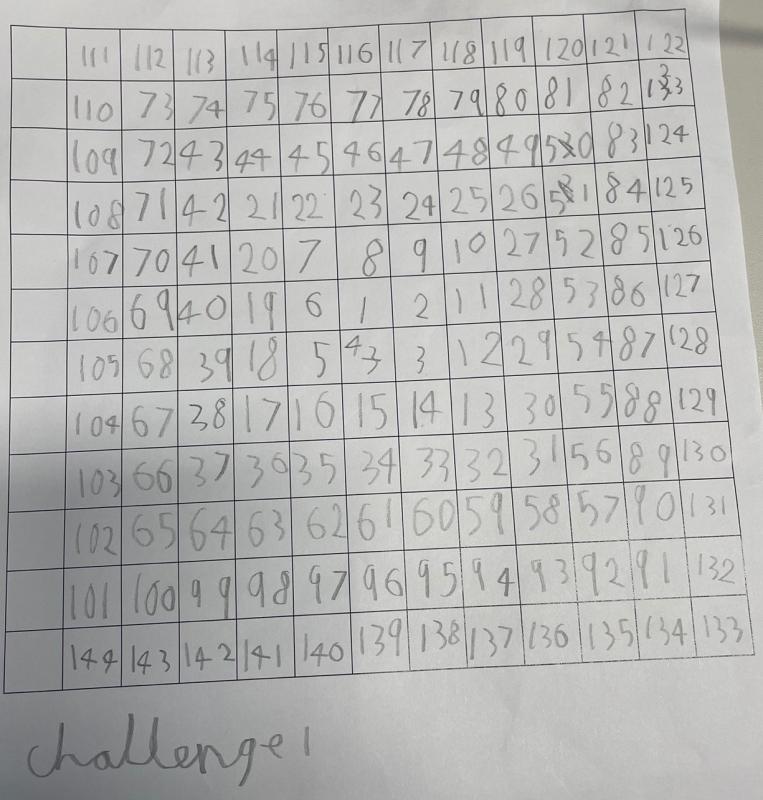 111 112 113 114 115 116 117 118 119 120 121 122
110 73 74 75 76 77 78 79 80 81 82 123
109 72 43 44 45 46 47 48 49 50 83 124
108 71 42 21 22 23 24 25 26 51 84 125
107 70 41 20 7 8 9 10 27 52 85 126
106 69 40 19 6 1 2 11 28 53 86 127
105 68 39 18 5 43 3 12 29 54 87 128
104 67 38 17 16 15 14 13 30 55 88 129
103 66 37 36 35 34 33 32 31 56 89 130
102 65 64 63 62 61 60 59 58 57 90 131
101 100 99 98 97 96 95 94 93 92 91 132
144 143 142 141 140 139 138 137 136 135 134 133
challenge 1